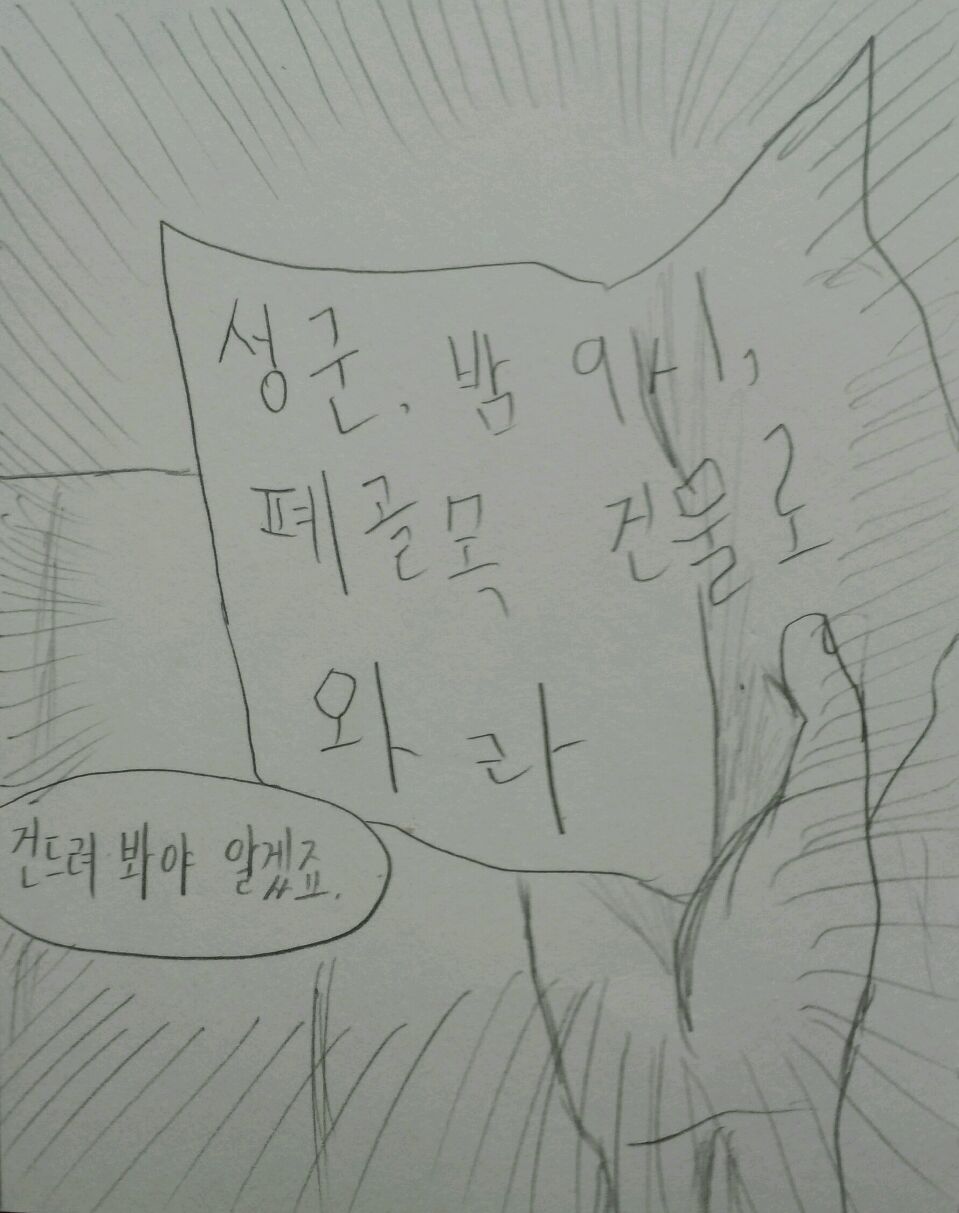 성군, 밤
폐골목 건물로
와라
건드려 봐야 알겠죠.